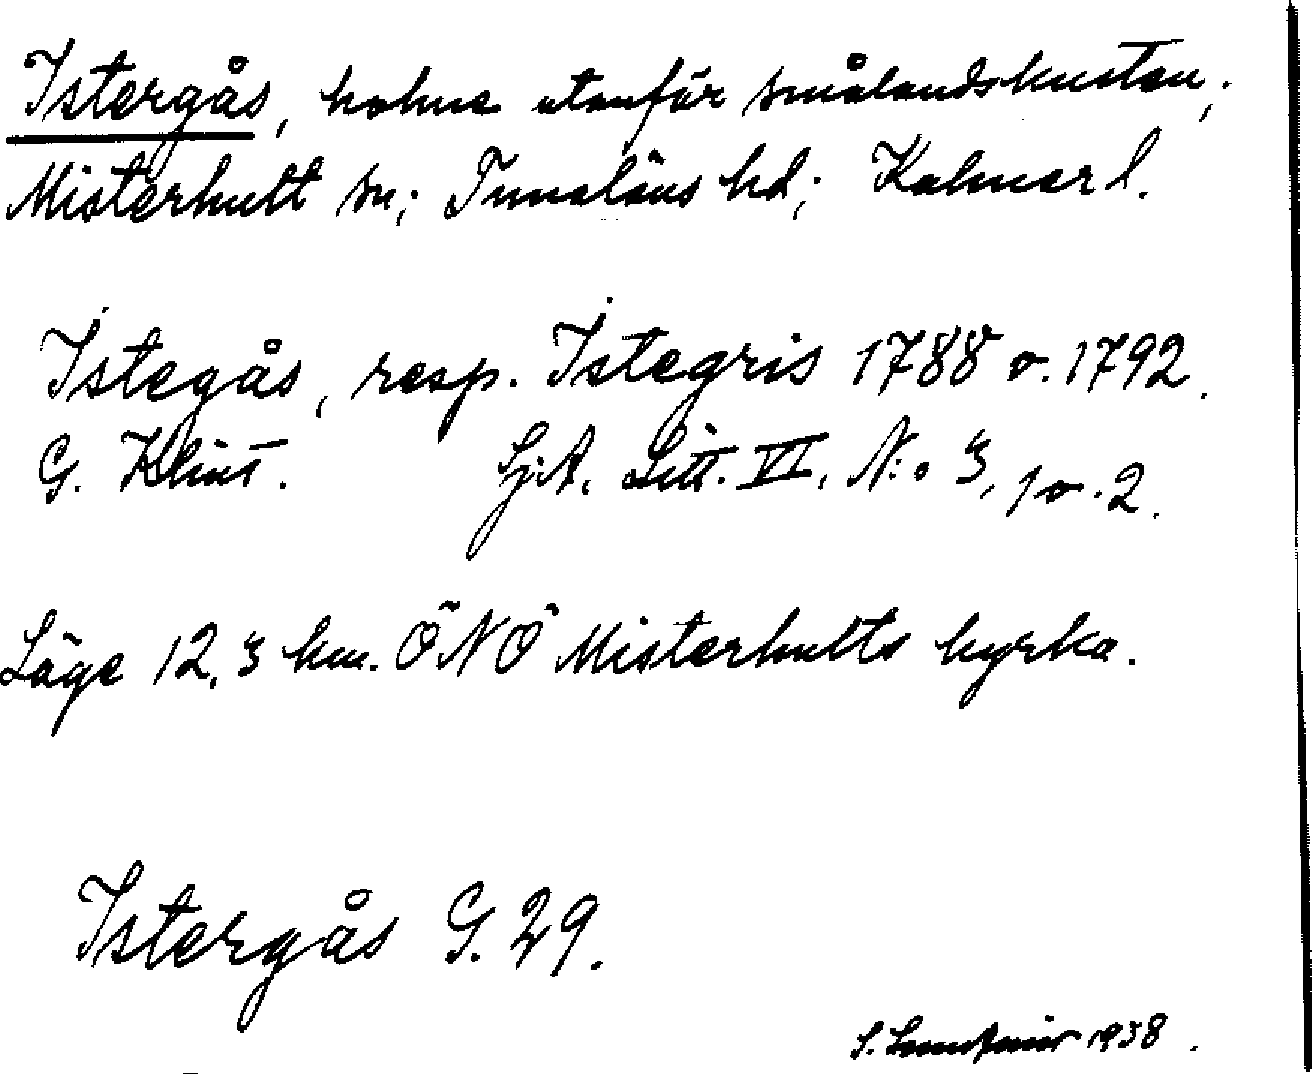 Istergås, holme utanför Smålandskusten,
Misterhult sn; Tunaläns hd; Kalmar l.
Istegås, resp. Istegris 1788 o. 1792.
G. Klint. Sj.A. Litt. VI. N:o 3, 1 o. 2.
Läge 12,3 km. ÖNÖ Misterhults kyrka.
Istergås G. 29.
S. 1938.